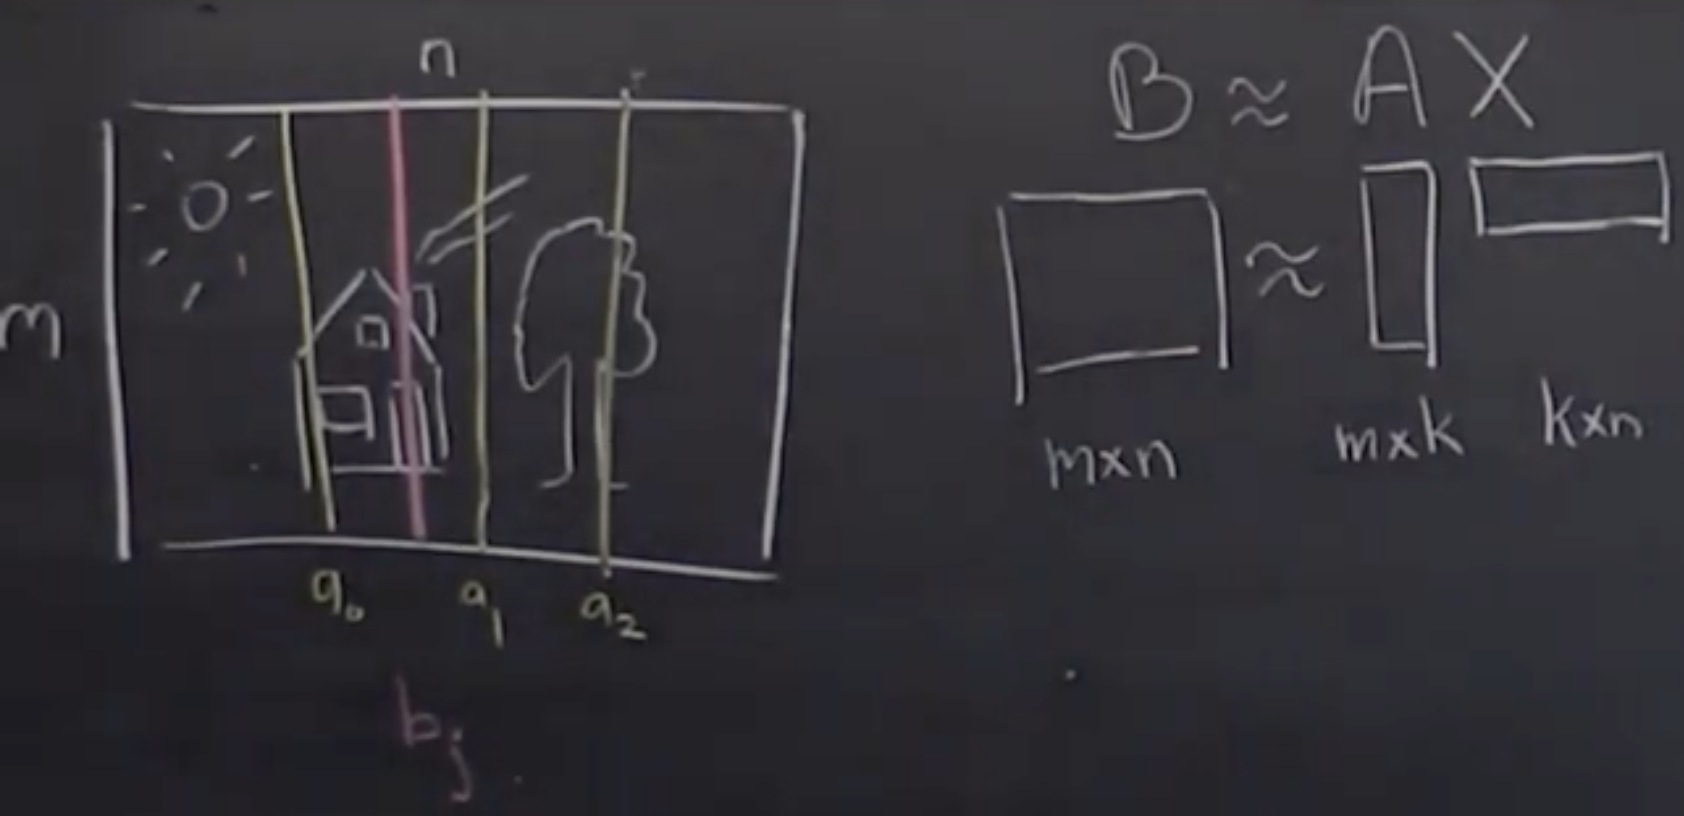 n
m
a₀ a₁ a₂
bⱼ
B ≈ A X
≈
m×n m×k k×n